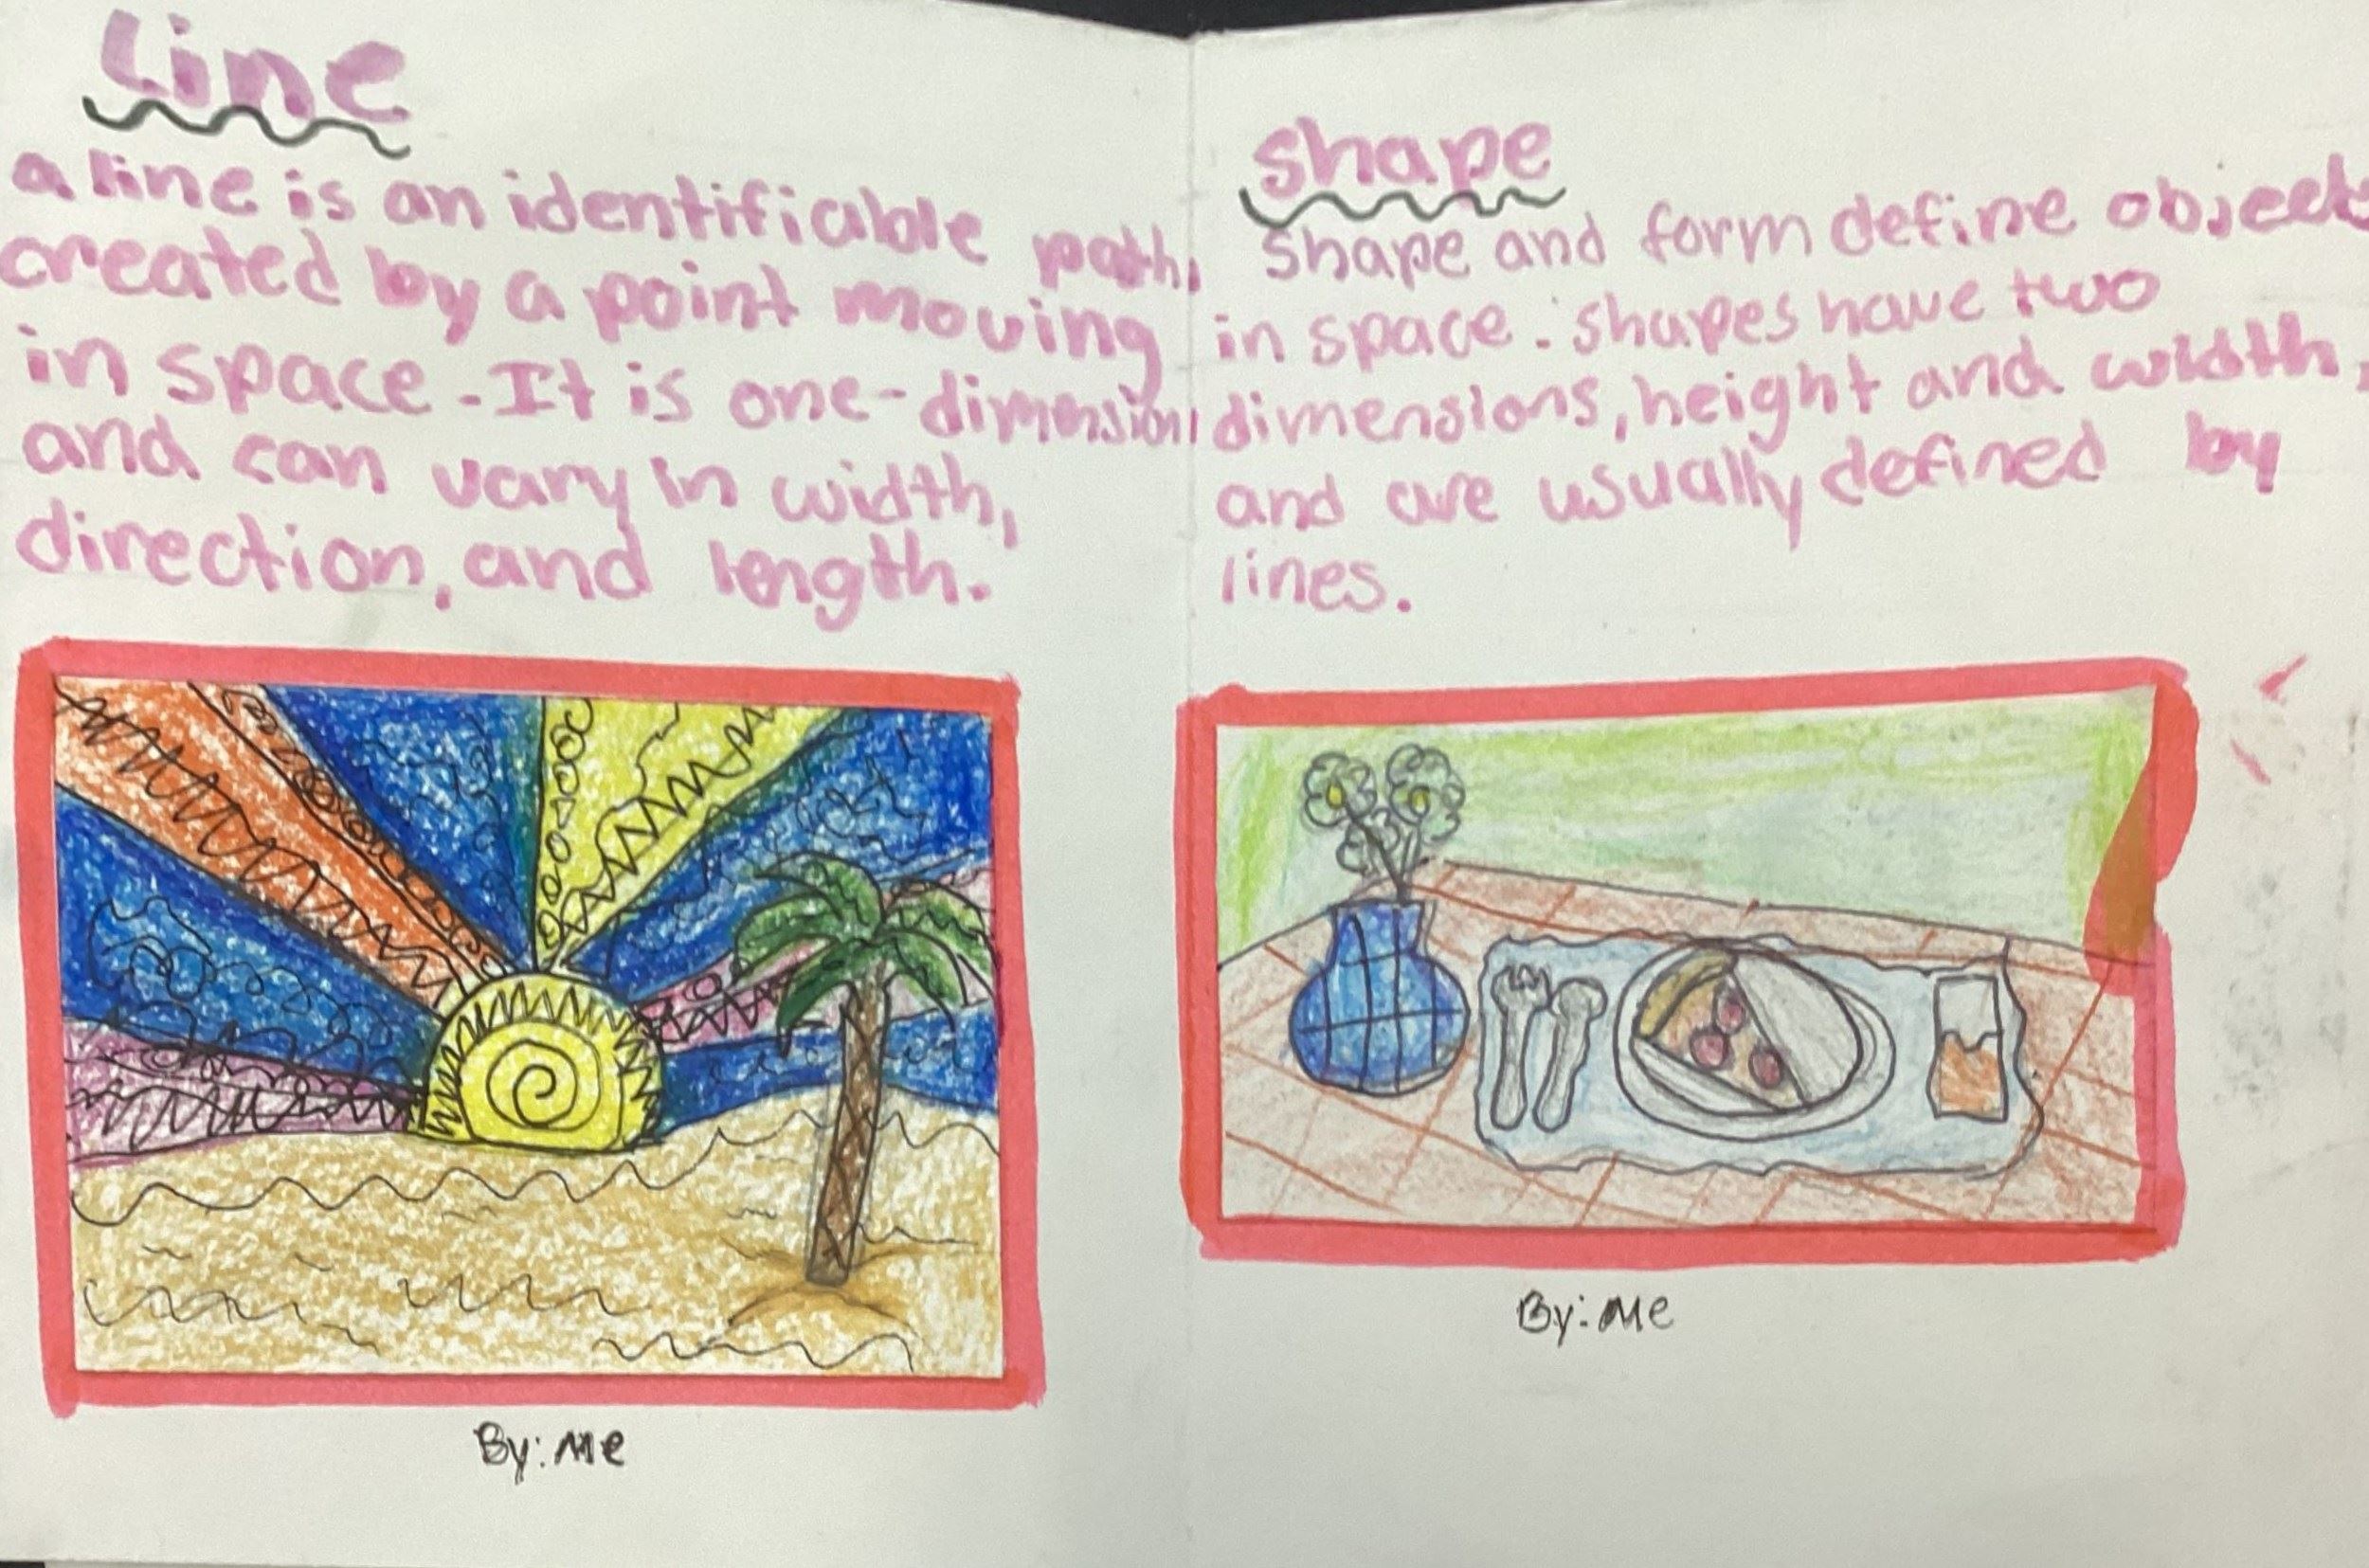 Line
a line is an identifiable path,
created by a point moving
in space. It is one-dimension
and can vary in width,
direction, and length.
By: Me
Shape
Shape and form define objects
in space. shapes have two
dimensions, height and width,
and are usually defined by
lines.
By: Me